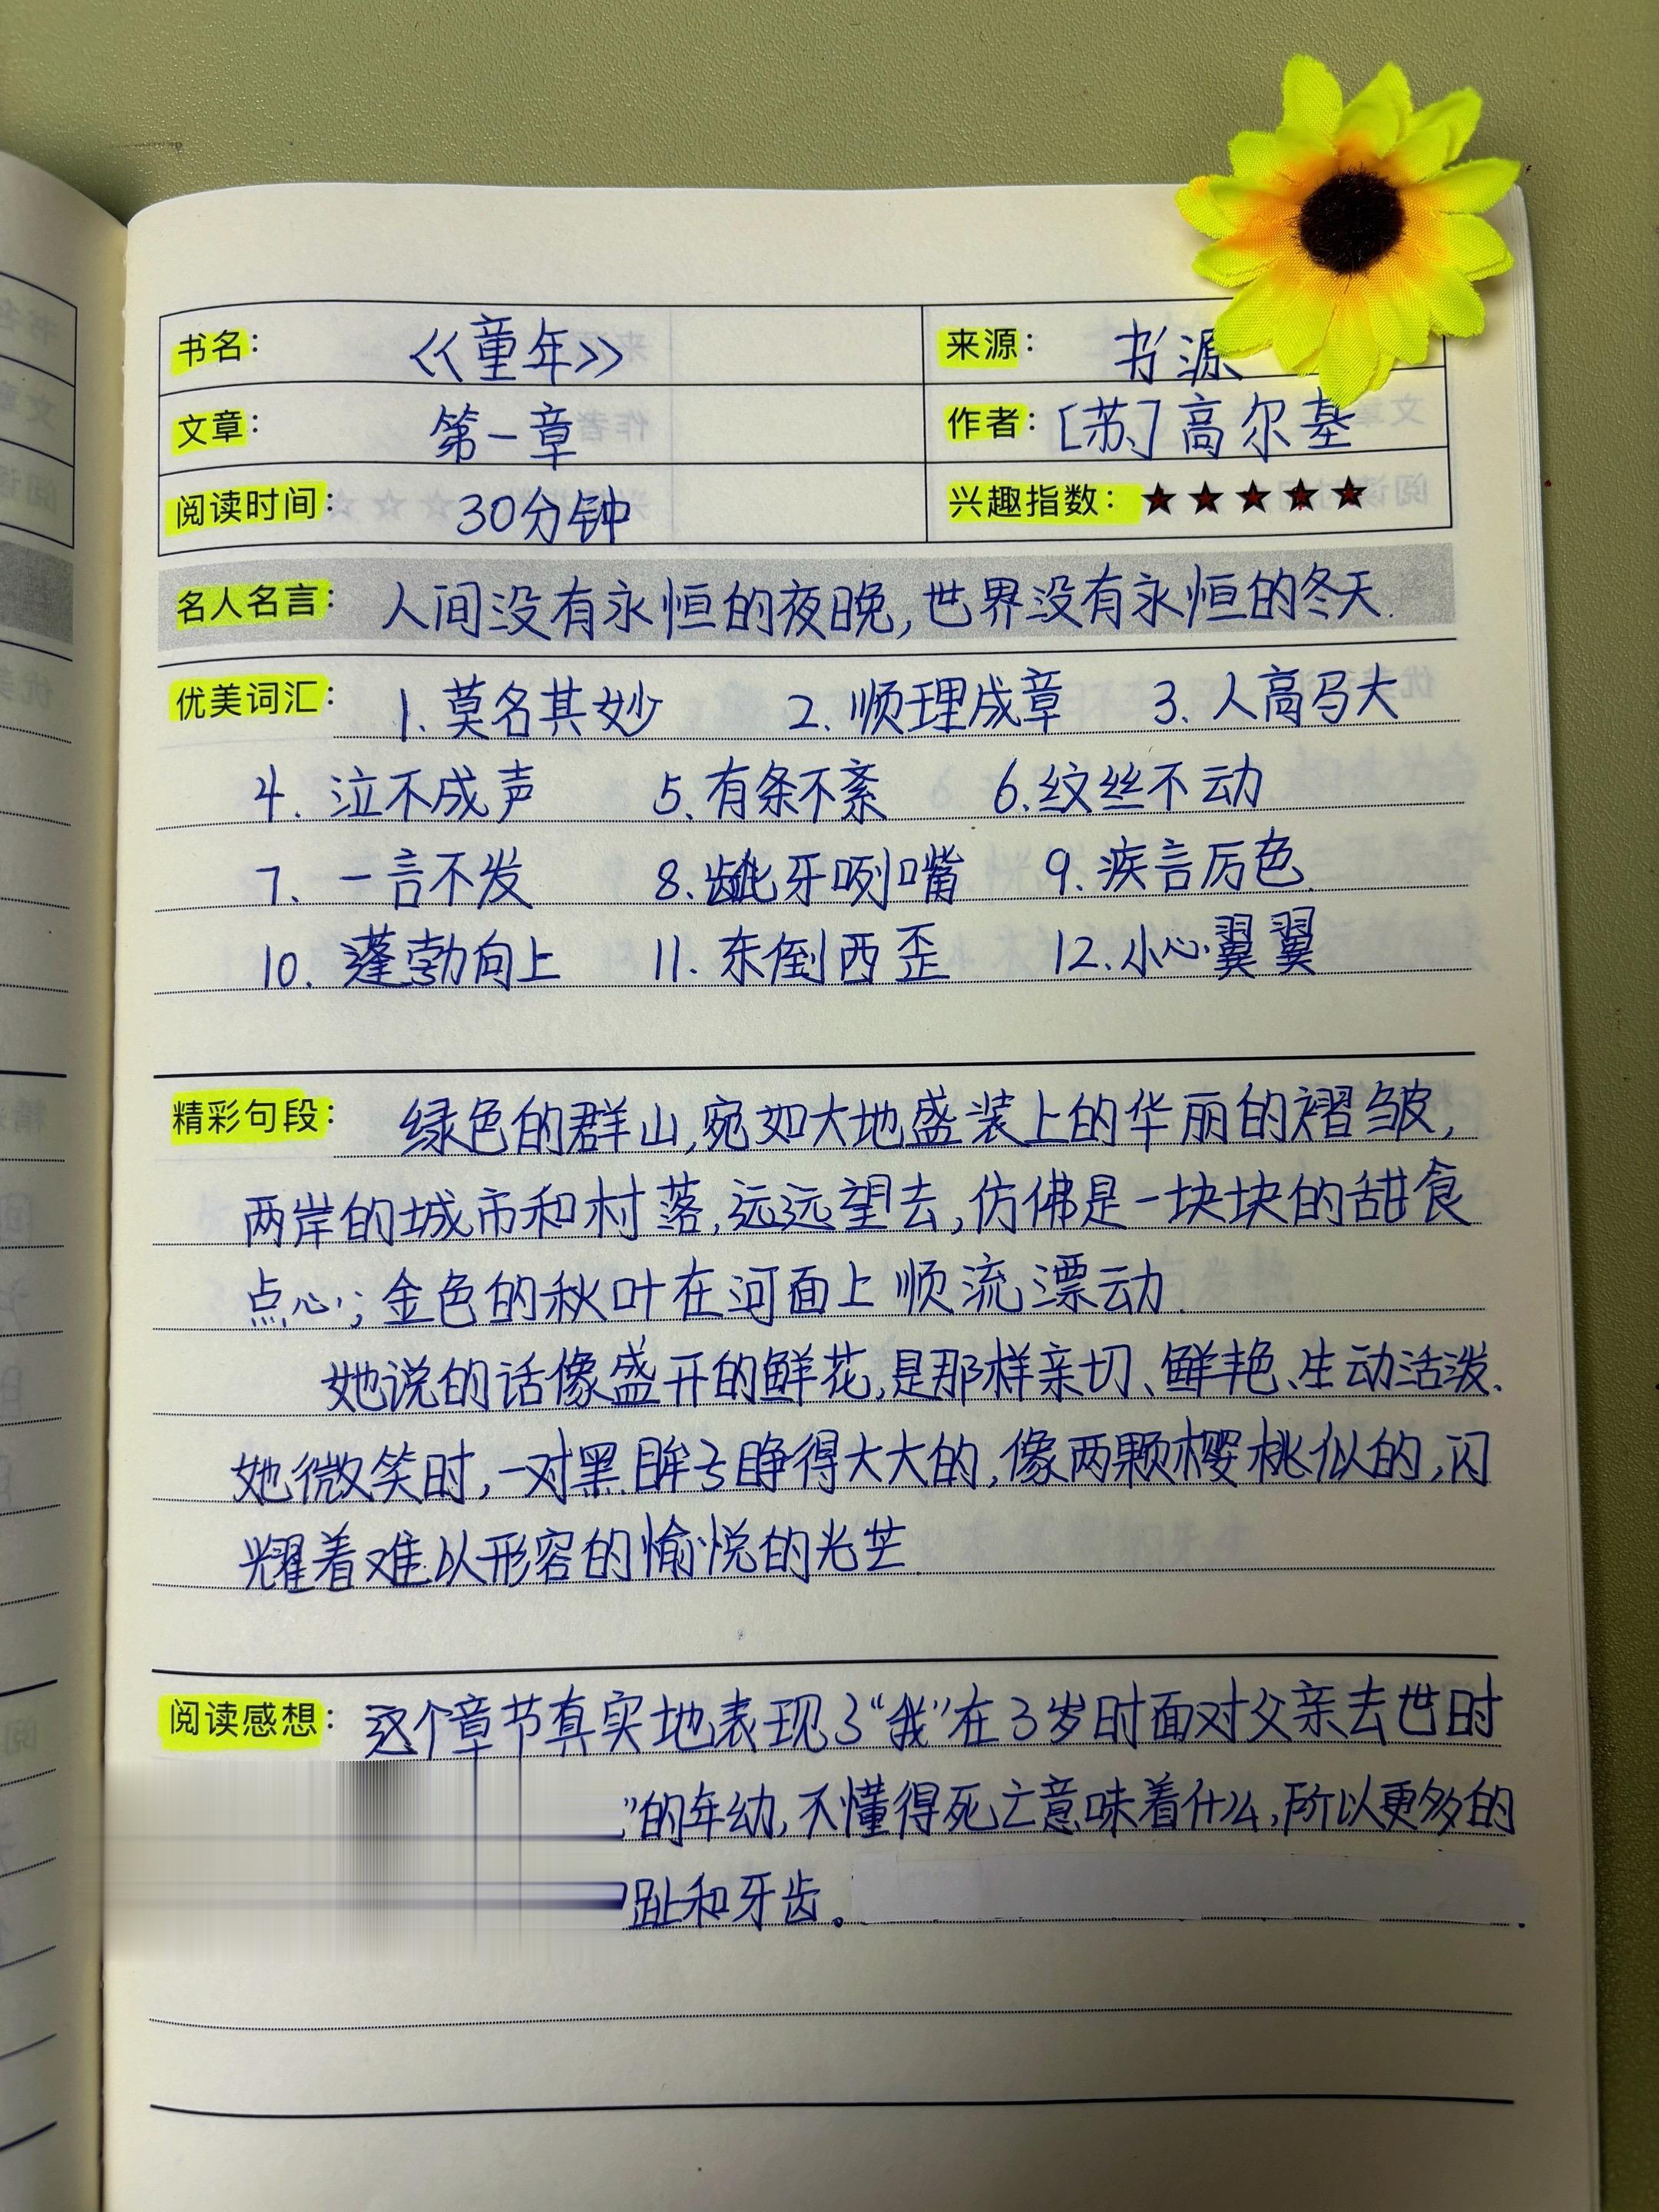 书名： 《童年》 来源： 书源
文章： 第一章 作者： [苏]高尔基
阅读时间： 30分钟 兴趣指数：★★★★★
名人名言： 人间没有永恒的夜晚,世界没有永恒的冬天.
优美词汇： 1.莫名其妙 2.顺理成章 3.人高马大
4.泣不成声 5.有条不紊 6.纹丝不动
7.一言不发 8.龇牙咧嘴 9.疾言厉色.
10.蓬勃向上 11.东倒西歪 12.小心翼翼
精彩句段： 绿色的群山,宛如大地盛装上的华丽的褶皱,
两岸的城市和村落,远远望去,仿佛是一块块的甜食
点心;金色的秋叶在河面上顺流漂动.
她说的话像盛开的鲜花,是那样亲切、鲜艳、生动活泼.
她微笑时,一对黑眸子睁得大大的,像两颗樱桃似的,闪
耀着难以形容的愉悦的光芒.
阅读感想： 这个章节真实地表现了“我”在3岁时面对父亲去世时
”的年幼,不懂得死亡意味着什么,所以更多的
趾和牙齿。